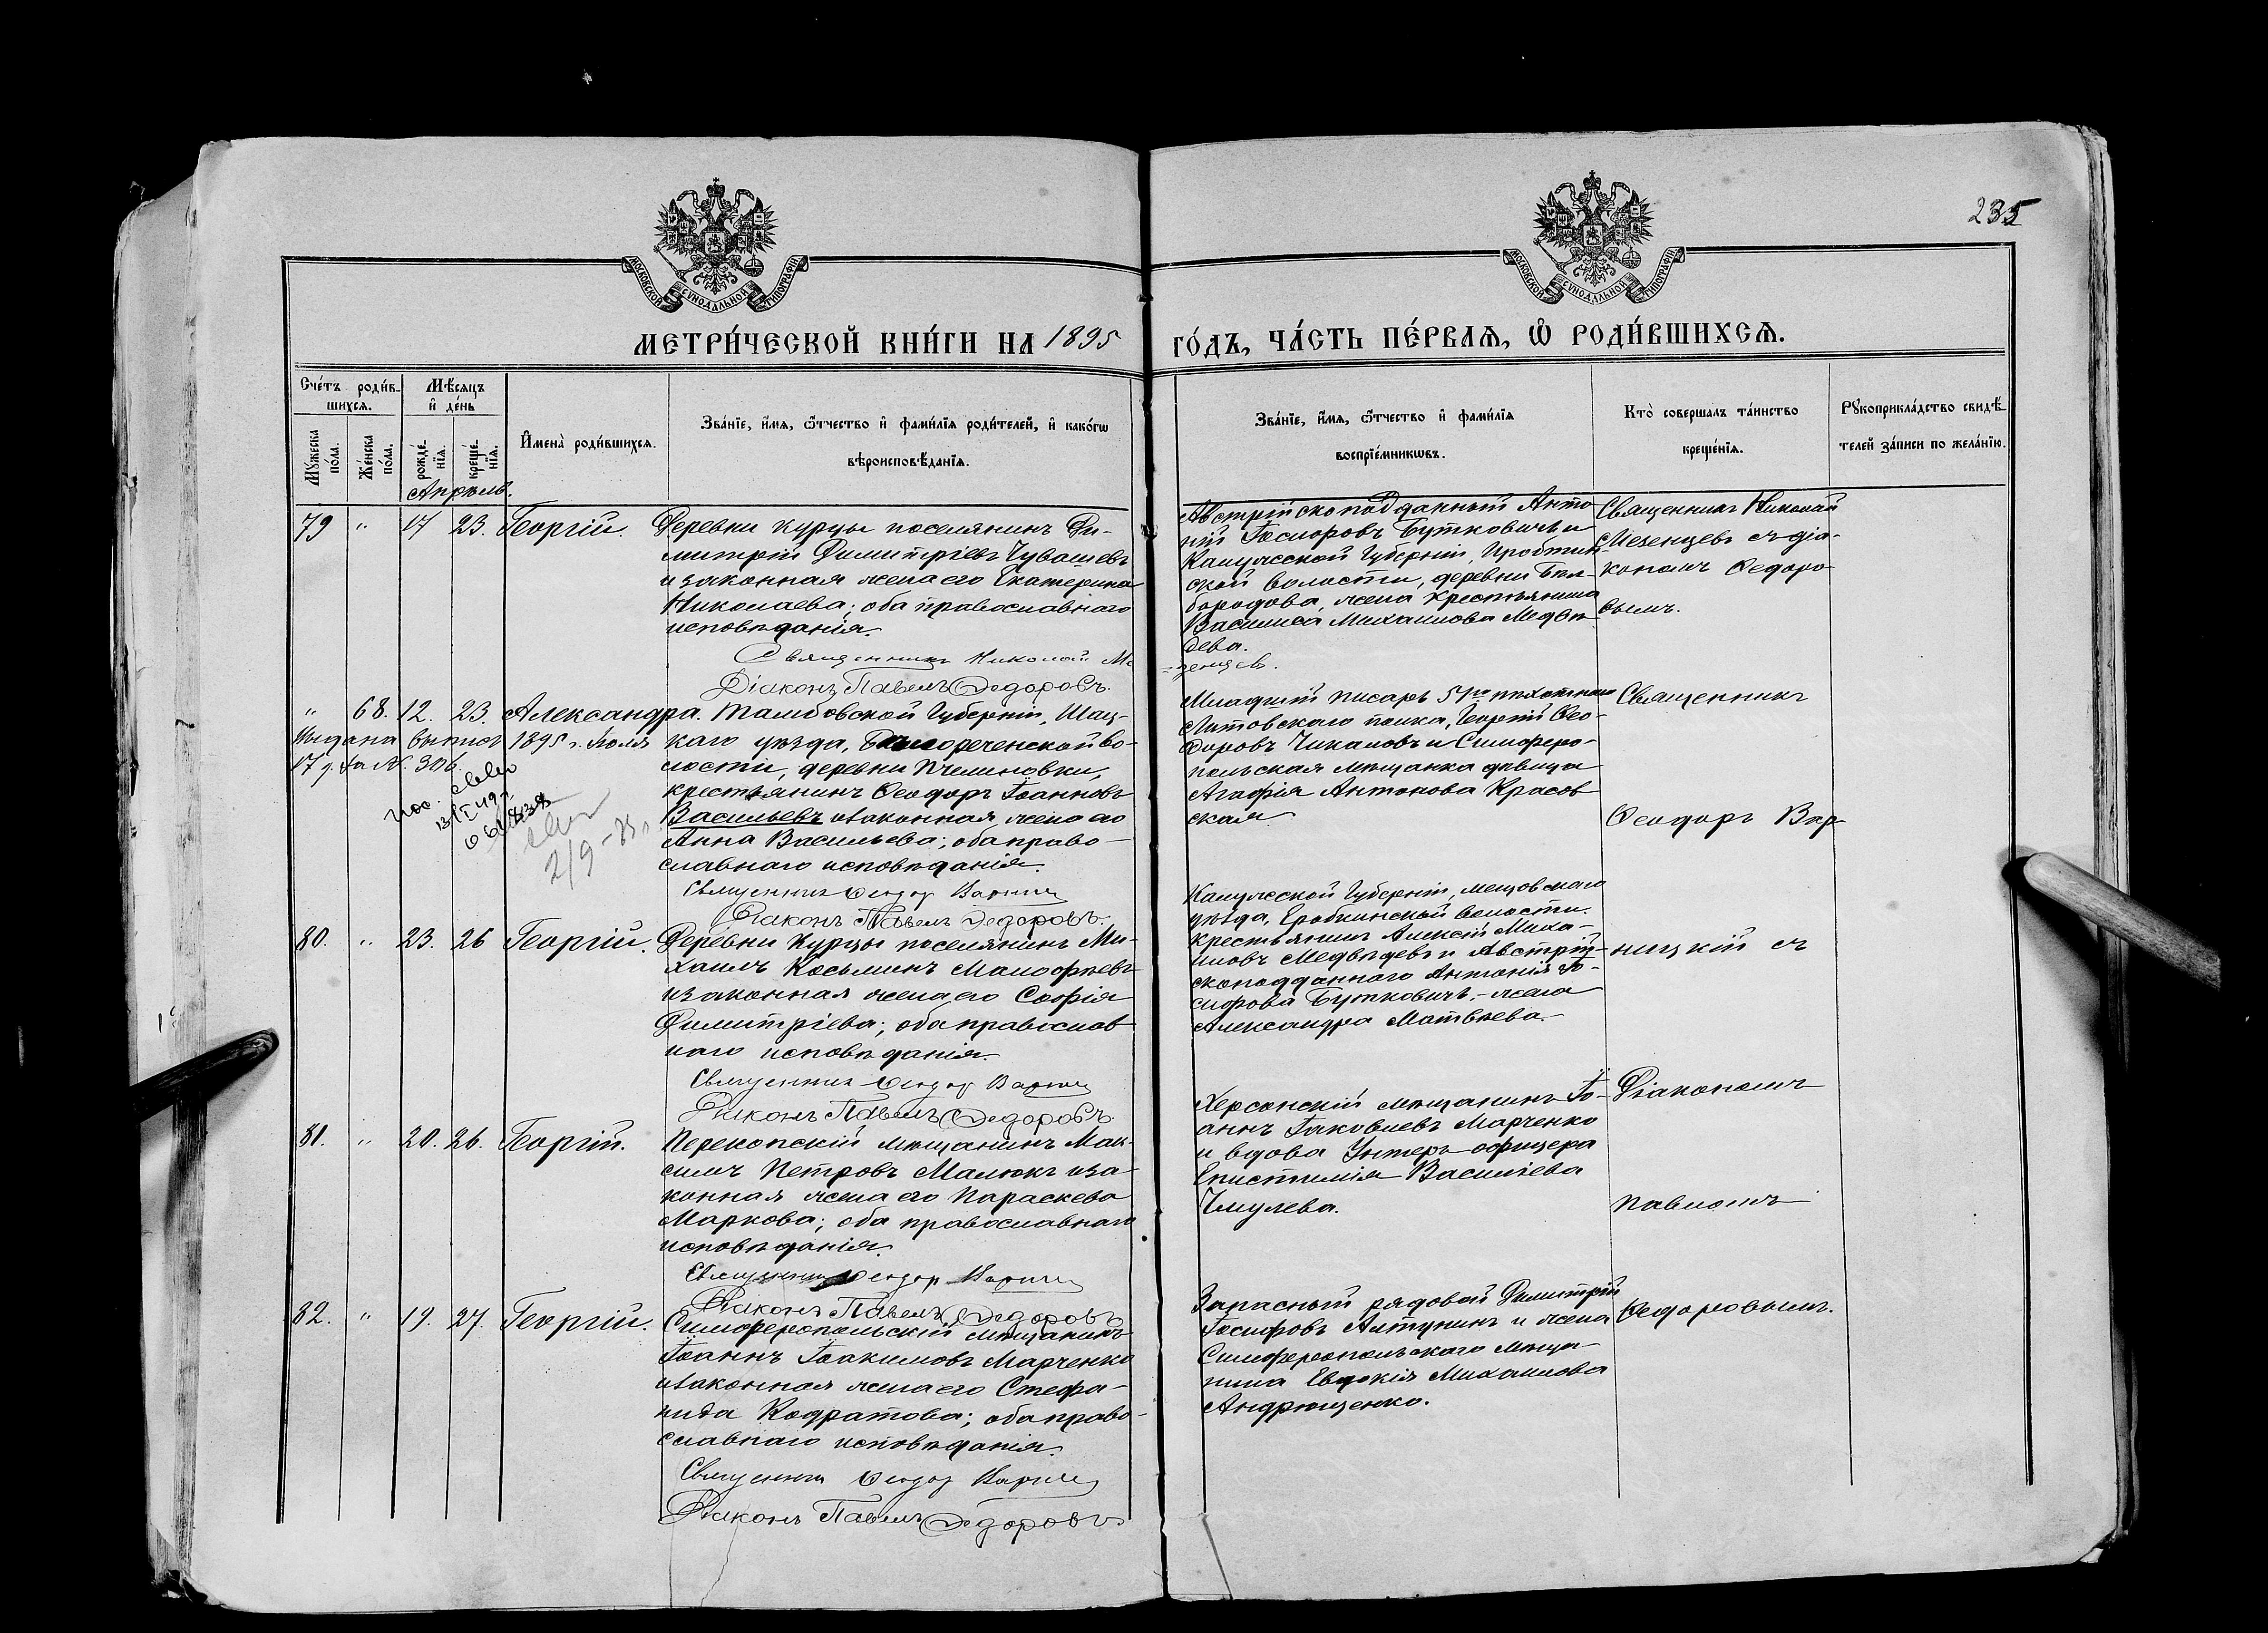 235
МОСКОВСКОЙ СѴНОДАЛЬНОЙ ТИПОГРАФІИ
МОСКОВСКОЙ СѴНОДАЛЬНОЙ ТИПОГРАФІИ
МЕТРИ́ЧЕСКОЙ КНИ́ГИ НА 1895 ГО́ДЪ, ЧА́СТЬ ПЕ́РВАѦ, Ѡ҆ РОДИ́ВШИХСѦ.
Сче́тъ роди́в-
шихсѧ.
Мѣ́сѧцъ
и҆ де́нь
Мꙋ́жеска по́ла.
Же́нска по́ла.
рожде́нїѧ.
креще́нїѧ.
И҆мена̀ роди́вшихсѧ.
Зва́нїе, и҆́мѧ, ѻ҆́тчество и҆ фами́лїѧ роди́телей, и҆ како́гѡ
вѣроисповѣ́данїѧ.
Зва́нїе, и҆́мѧ, ѻ҆́тчество и҆ фами́лїѧ
воспрїе́мникѡвъ.
Кто̀ соверша́лъ та́инство
креще́нїѧ.
Рꙋкоприкла́дство свидѣ́-
телей за́писи по жела́нїю.
Апрѣль.
79 " 17 23. Георгій. Деревни Курцы поселянинъ Ди-
митрій Димитріевъ Чувашевъ
и законная жена его Екатерина
Николаева; оба православнаго
исповѣданія.
Священникъ Николай Ме
зенцевъ.
Діаконъ Павелъ Ѳедоровъ.
Австрійскоподданный Анто
ній Іосифовъ Буткевичъ и
Калужской Губерніи,
ской волости, деревни Бѣл-
бородова, жена крестьянина
Василиса Михаилова Медвѣ
дева.
Священникъ Николай
Мезенцевъ съ діа-
кономъ Ѳедоро-
вымъ.
" 68. 12. 23. Александра. Тамбовской Губерніи, Шац-
каго уѣзда, во-
лости, деревни Пчелиновки,
крестьянинъ Ѳеодоръ Іоанновъ
Васильевъ и законная жена его
Анна Васильева; оба право-
славнаго исповѣданія.
Священникъ Ѳеодор
Діаконъ Павелъ Ѳедоровъ.
Выдана выпись 1895 г. Іюля
17 д. за №. 306.
2/9
Младшій писарь 51го пѣхотнаго
Литовскаго полка, Георгій Ѳео-
доровъ Чикаловъ и Симферо-
польская мѣщанка дѣвица
Агафія Антонова Красов
ская
Священникъ
Ѳеодоръ Вар-
80. " 23. 26 Георгій. Деревни Курцы поселянинъ Ми-
хаилъ Косьминъ Малофѣевъ
и законная жена его Софія
Димитріева; оба православ
наго исповѣданія.
Священник Ѳеодор
Діаконъ Павелъ Ѳедоровъ.
Калужской Губерніи, Мещовскаго
уѣзда, волости.
крестьянинъ Алексій Миха-
иловъ Медвѣдевъ и Австрій-
скоподданнаго Антонія Іо-
сифова Буткевичъ,- жена
Александра Матвѣева.
ницкій съ
81. " 20. 26. Георгій. Перекопскій мѣщанинъ Мак-
симъ Петровъ Малюкъ и за-
конная жена его Параскева
Маркова; оба православнаго
исповѣданія.
Священник Ѳеодор
Діаконъ Павелъ Ѳедоровъ
Херсонскій мѣщанинъ Іо-
аннъ Іаковлевъ Марченко
и вдова Унтеръ офицера
Епистимія Василіева
Чмулева.
Діакономъ
Павломъ
82. " 19. 27. Георгій. Симферопольскій мѣщанинъ
Іоаннъ Іоакимовъ Марченко
и законная жена его Стефа-
нида Кодратова; оба право-
славнаго исповѣданія.
Священник Ѳеодор
Діаконъ Павелъ Ѳедоровъ
Запасный рядовой Димитрій
Іосифовъ Алтунинъ и жена
Симферопольскаго мѣща-
нина Евдокія Михаилова
Андрющенко.
Ѳедоровымъ.